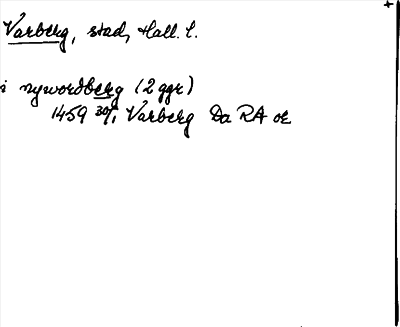 Varberg, stad, Hall. l.
i nywordberg (2 ggr)
1459 30/1 Varberg Da RA oe